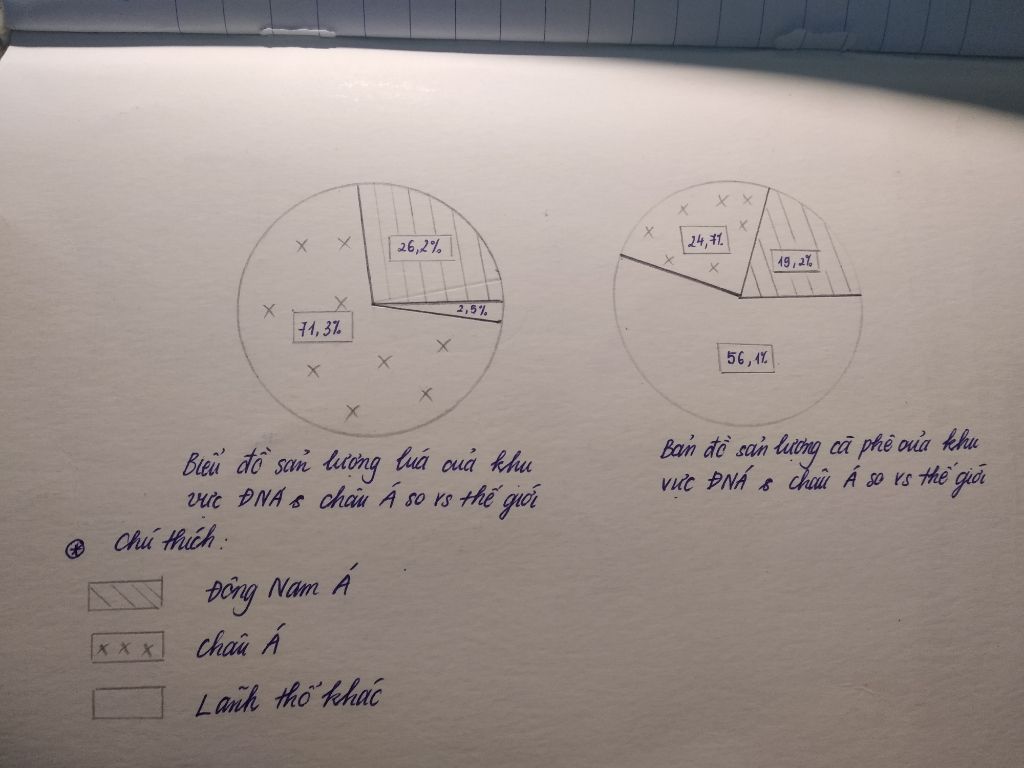 26,2%
2,5%
71,3%
24,7%
19,2%
56,1%
Biểu đồ sản lượng lúa của khu
vực ĐNÁ & châu Á so vs thế giới
Bản đồ sản lượng cà phê của khu
vực ĐNÁ & châu Á so vs thế giới
* Chú thích:
Đông Nam Á
Châu Á
Lãnh thổ khác